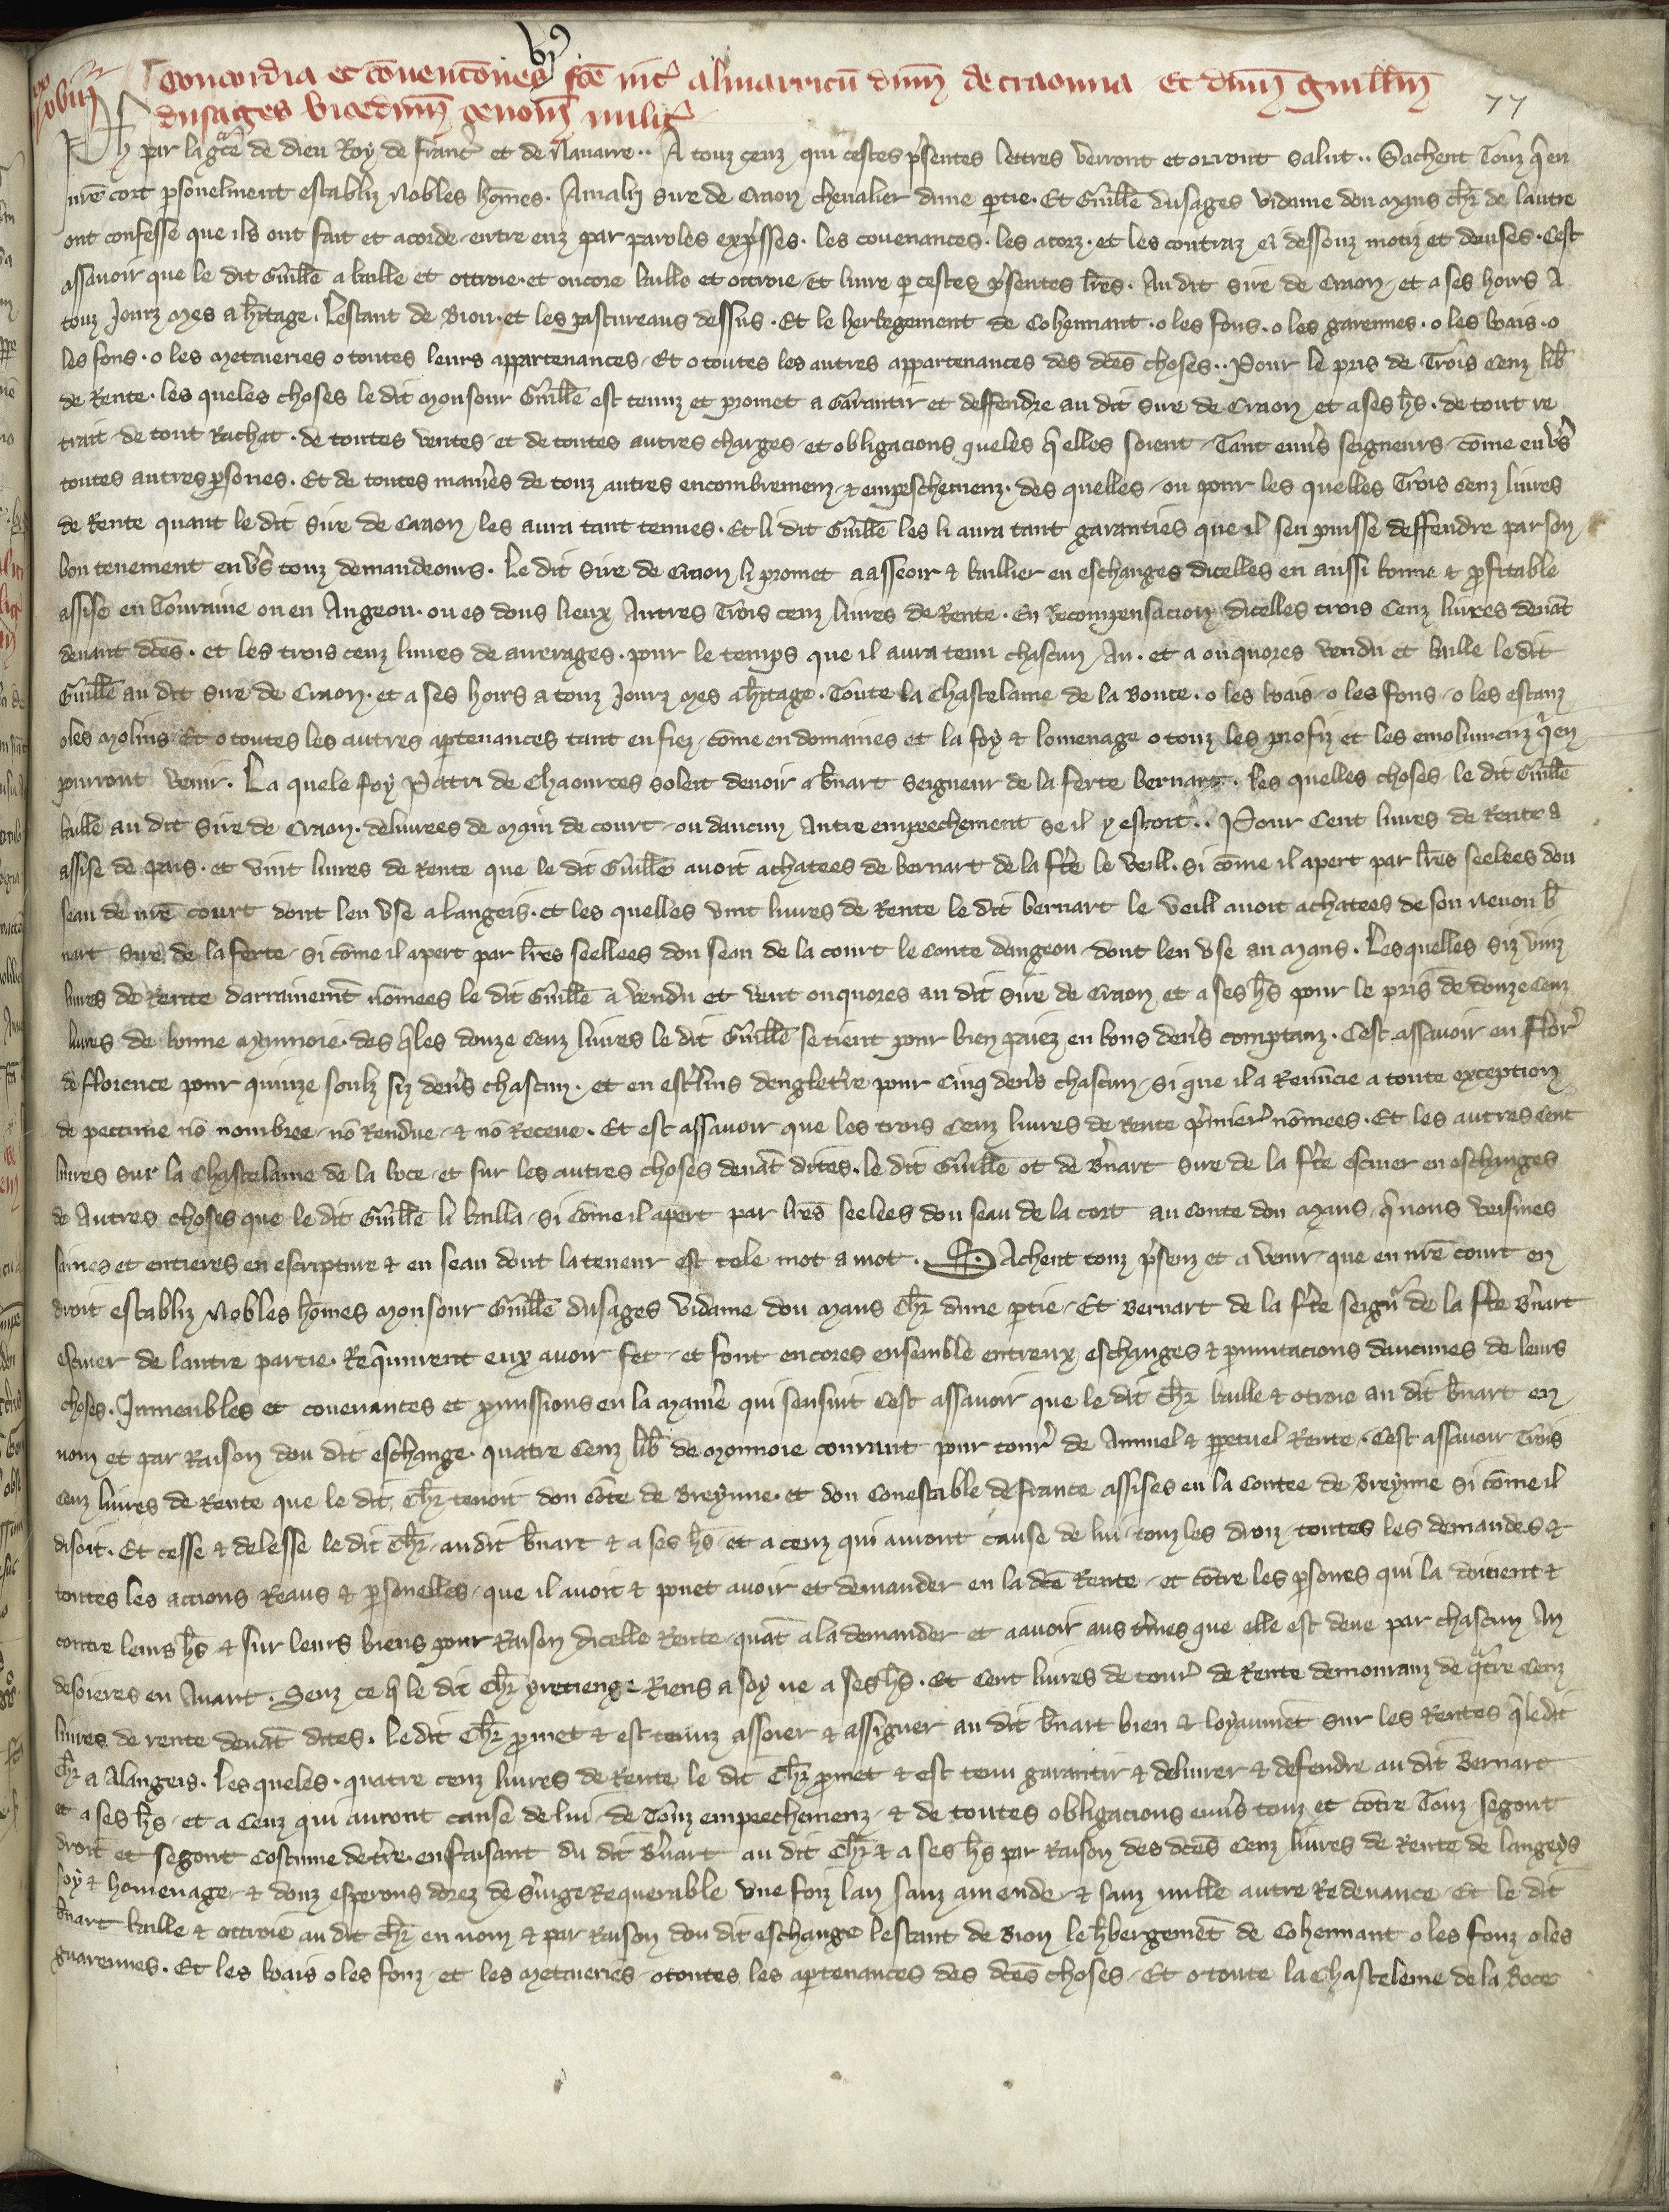 Concordia et cōventōnes fcē int̄ almarricū dn̄m de craonna Et dn̄m guillm̄
dusages vicedn̄m cenom̄ milit̄
77
Ph par la gr̄ce de dieu Roy de franc̄ et de Navarre .. A touz ceuz qui cestes p̄sentes lettres verront et orront salut .. Sachent Touz q̄ en
nr̄e cort p̄sonelment establiz Nobles hōmes . Amalri sire de Craon chevalier dune p̄tie . Et Guill̄e dusages vidame dou Mans ch̄r de lautre
ont confesse que ils ont fait et acorde entre euz par paroles exp̄sses . les covenances . les acorz . et les contraz ci dessouz motiz et deuises . Cest
assavoir que le dit Guill̄e a baille et ottroie . et encore baille et ottroie Et livre p̄ cestes p̄sentes l̄res . Au dit sire de Craon et a ses hoirs A
touz Jourz Mes a h̄itage . Lestanc de Bion . et les pastureaus dessus . Et le herbegement de Cohemant . o les fons . o les garennes . o les bois . o
les fons . o les Metaieries o toutes leurs appartenances Et o toutes les autres appartenances des dc̄es choses .. Pour le pris de Trois Cenz lib̄
de Rente . les queles choses le dit Monsour Guill̄e est tenuz et promet a Garantir et deffendre au dit Sire de Craon et a ses h̄s . de tout re
trait de tout Rachat . de toutes ventes et de toutes autres charges et obligacions queles q̄ elles soient Tant envs̄ seigneurs cōme env̄s
toutes autres p̄sones . Et de toutes manie̅s de touz autres encombremenz & empeschemenz . des quelles ou pour les quelles Trois Cenz livres
de Rente quant le dit Sire de Craon les aura tant tenues . Et li dit Guill̄e les li aura tant garanties que il sen puisse deffendre par son
bon tenement env̄s touz demandeours . Le dit Sire de Craon li promet a asseoir & baillier en eschanges dicelles en aussi bonne & p̄fitable
assise en Touraine ou en Angeou . ou es dous lieux Autres Trois cenz livres de Rente . En Recompensacion dicelles trois Cenz livres devāt
devant dc̄es . et les trois cenz livres de arrerages . pour le temps que il aura tenu chascun An . et a onquores vendu et baille le dit
Guill̄e au dit Sire de Craon . et a ses hoirs a touz Jourz Mes a h̄itage . Toute la Chastelanie de la Boute . o les bois o les fons o les estanz
o les Molins Et o toutes les autres ap̄tenances tant en fiez cōme en domaines et la foy & lomenage o touz les profiz et les emolumenz q̄ en
pourront venir . La quele foy Patri de Chaources soleit devoir a b̄nart Seigneur de la ferte bernart . les quelles choses le dit Guill̄e
baille au dit Sire de Craon . delivrees de Main de court ou daucun Autre empeechement se il y estoit .. Pour Cent livres de Rente a
assise de pais . et vint livres de Rente que le dit Guill̄e avoit achatees de Bernart de la fr̄te le veill . si cōme il apert par l̄res seelees dou
seau de nr̄e court dont len vse a langeis . et les quelles vint livres de Rente le dit bernart le veill avoit achatees de son Nevou b̄
nart Sire de la ferte . si cōme il apert par l̄res seellees dou seau de la court le conte dangeou dont len vse au Mans . Lesquelles siz vinz
livres de Rente darrainemt̄ nōmees le dit Guill̄e a vendu et vent onquores au dit Sire de Craon et a ses h̄s pour le pris de douze Cenz
livres de bonne Mynnoie . des q̄les douze Cenz livres le dit Guill̄e se tient pour bien paiez en bons den̄s comptanz . Cest assavoir en flor̄
de florence pour quinze soulz siz den̄s chascun . et en est̄lins dengleterre pour Cinq den̄s chascun . si que il a Renūcie a toute exception
de peccune nō nombree nō Rendue & nō Receue . Et est assavoir que les trois Cenz livres de Rente p̄mier̄ nōmees . Et les autres Cent
livres sur la Chastelanie de la boce et sur les autres choses devāt dites . le dit Guill̄e ot de B̄nart Sire de la fr̄te escuier en eschanges
de Autres choses que le dit Guill̄e li bailla . si cōme il apert par l̄res seelees dou seau de la cort au conte dou Mans q̄ nous veismes
saines et entieres en escripture & en seau dont la teneur est tele mot a mot . Sachent touz p̄senz et a venir que en nr̄e court en
droit establiz Nobles hōmes Monsour Guill̄e dusages vidame dou Mans Ch̄r dune p̄tie . Et Bernart de la fr̄te seign̄r de la fr̄te B̄nart
escuier de lautre partie . Req̄nurent eux avoir fet et font encores ensemble entreux eschanges & p̄mutacions daucunes de leurs
choses . Inmeubles et covenances et p̄missions en la Manie̅ qui sensuit Cest assavoir que le dit Ch̄r baille & otroie au dit b̄nart en
nom et par Raison dou dit eschange . quatre Cenz lib̄ de Monnoie courant pour tour̄ de Annuel & p̄petuel Rente . Cest assavoir Trois
Cenz livres de Rente que le dit Ch̄r tenoit dou cōte de Breynne . et dou Conestable de france assises en la Contee de Breynne si cōme il
disoit . Et cesse & delesse le dit Ch̄r au dit b̄nart & a ses h̄s et a ceuz qui auront cause de lui touz les droiz toutes les demandes &
toutes les actions Reaus & p̄sonelles que il avoit & pouet avoir et demander en la dc̄e Rente et cōtre les p̄sones qui la doivent &
contre leurs h̄s & sur leurs biens pour Raison dicelle Rente quāt a la demander et a avoir aus t̄mes que elle est deue par chascun An
desoieres en Avant . Senz ce q̄ le dit Ch̄r y retienge Riens a soy ne a ses h̄s . Et Cent livres de tour̄ de Rente demouranz de q̄tre Cenz
livres de rente devāt dites . le dit Ch̄r p̄met & est tenuz assoier & assigner au dit b̄nart bien & loyaumēt sur les Rentes q̄ le dit
Ch̄r a A langeis . les queles . quatre cenz livres de Rente le dit Ch̄r p̄met & est tenu garantir & delivrer & defendre au dit Bernart
et a ses h̄s et a Ceuz qui auront cause de lui de Touz empeechemenz & de toutes obligacions envs̄ touz et cōtre Touz segont
droit et segont Costume de tr̄re . en faisant du dit B̄nart au dit Ch̄r & a ses h̄s par Raison des dc̄es Cenz livres de Rente de langeys
foy & homenage & douz esperons dorez de s̄vige Requerable vne foiz lan sanz amende & sanz nulle autre Redevance Et le dit
b̄nart baille & ottroie au dit ch̄r en nom & par Raison dou dit eschange lestanc de Bion le h̄bergemēt de Cohemant o les fonz o les
guarennes . Et les bois o les fonz et les Metaieries o toutes les ap̄tenances des dc̄es choses Et o toute la Chastelenie de la Boce